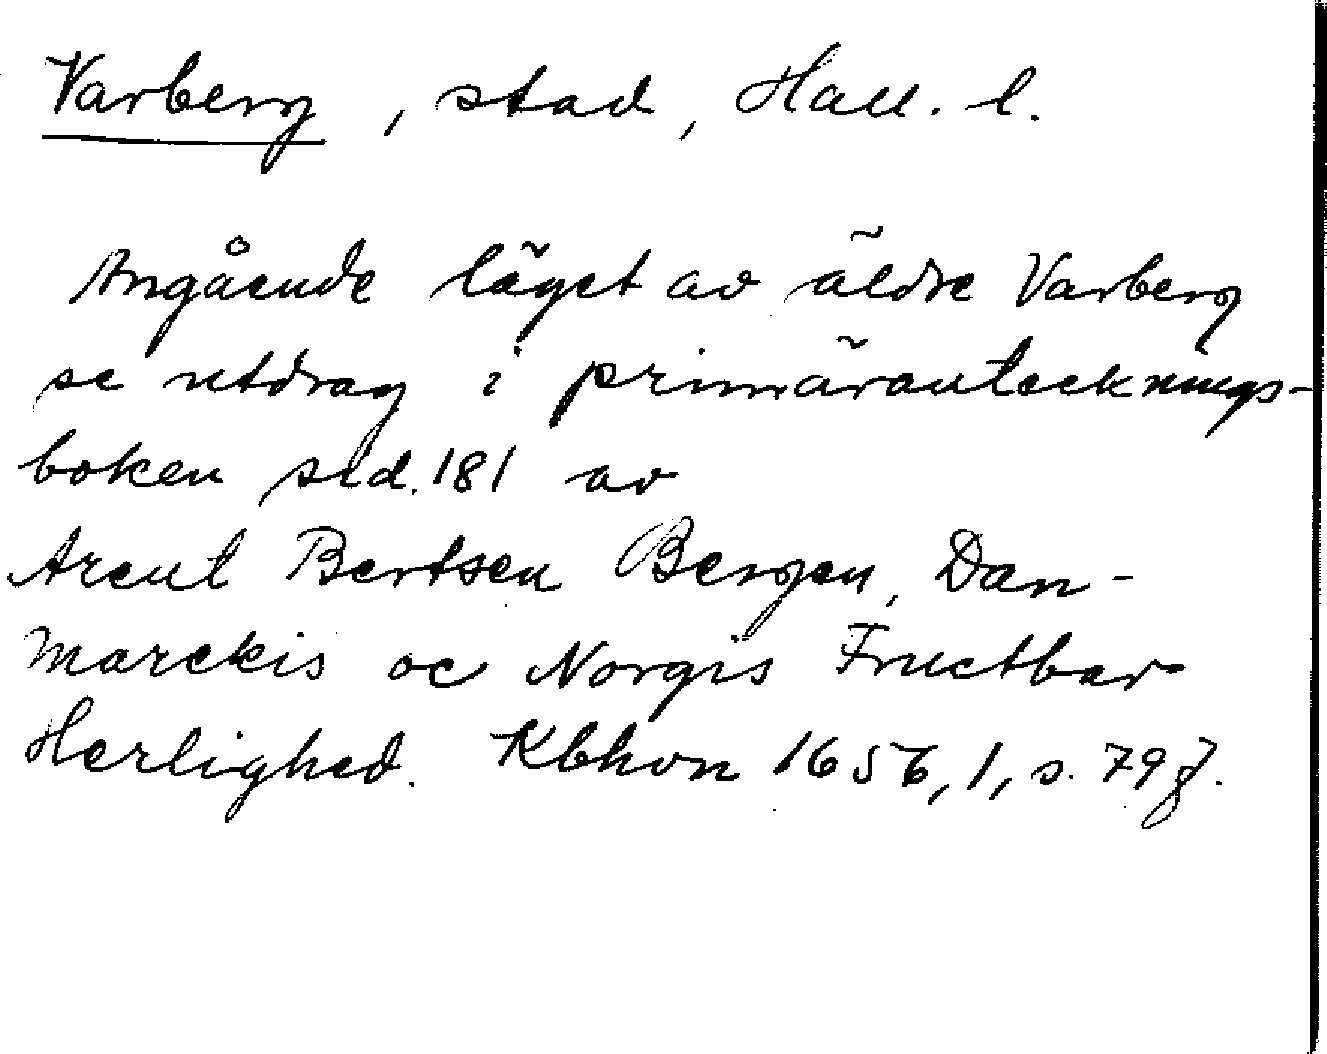 Varberg, stad, Hall. l.
Angående läget av äldre Varberg
se utdrag i primärantecknings-
boken sid. 181 av
Arent Bertsen Bergen, Dan-
marckis oc Norgis Fructbar
Herlighed. Kbhvn 1656, 1, s. 79 f.